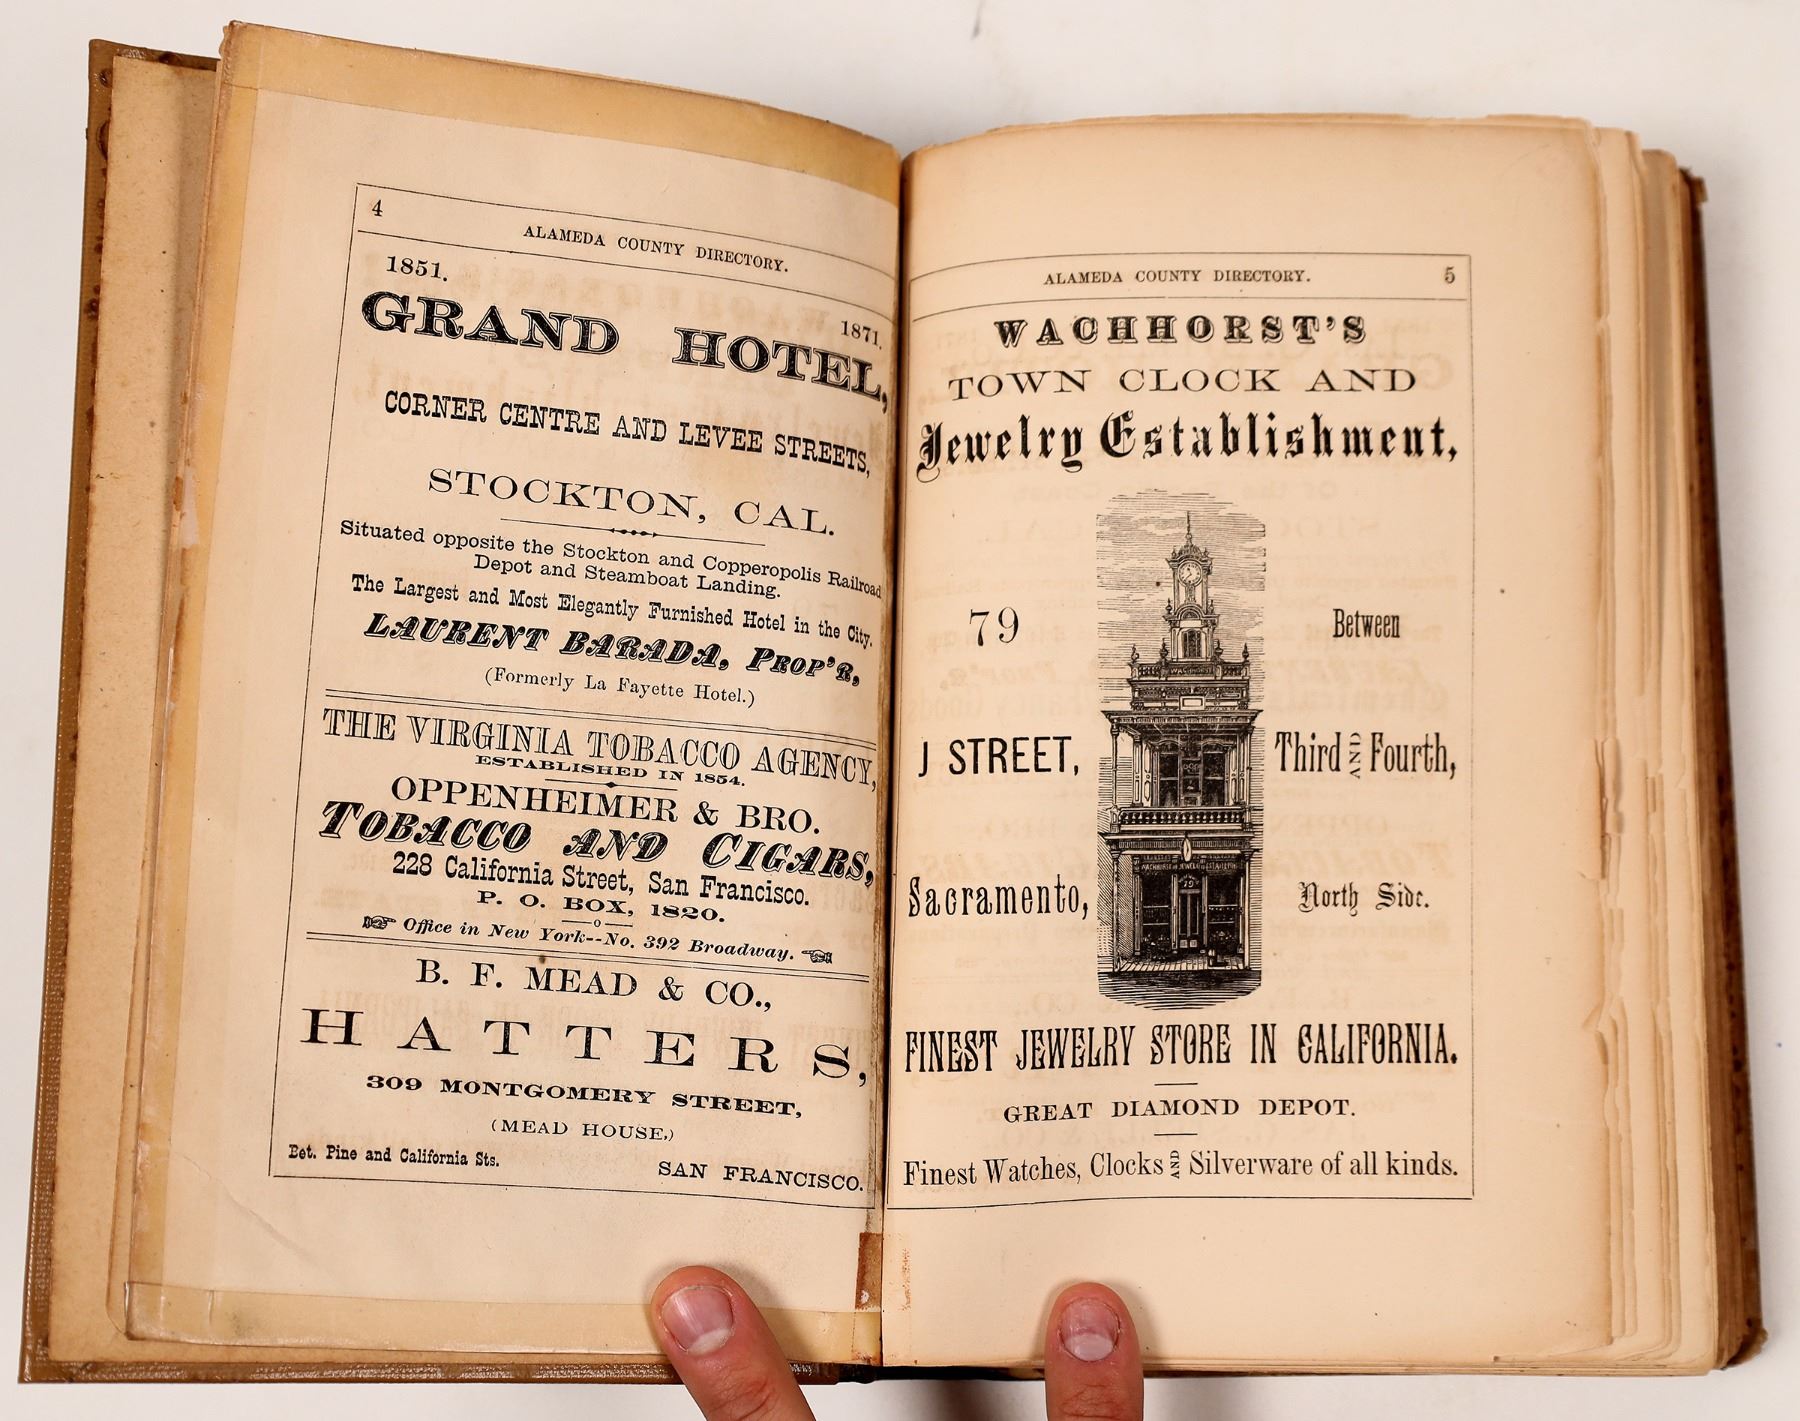 4
ALAMEDA COUNTY DIRECTORY.
1851.
1871.
GRAND HOTEL,
CORNER CENTRE AND LEVEE STREETS,
STOCKTON, CAL.
Situated opposite the Stockton and Copperopolis Railroad
Depot and Steamboat Landing.
The Largest and Most Elegantly Furnished Hotel in the City.
LAURENT BARADA, PROP'R,
(Formerly La Fayette Hotel.)
THE VIRGINIA TOBACCO AGENCY,
ESTABLISHED IN 1854.
OPPENHEIMER & BRO.
TOBACCO AND CIGARS,
228 California Street, San Francisco.
P. O. BOX, 1820.
Office in New York--No. 392 Broadway.
B. F. MEAD & CO.,
HATTERS,
309 MONTGOMERY STREET,
(MEAD HOUSE,)
Bet. Pine and California Sts.
SAN FRANCISCO.
ALAMEDA COUNTY DIRECTORY.
5
WACHHORST'S
TOWN CLOCK AND
Jewelry Establishment,
79
Between
J STREET,
Third AND Fourth,
Sacramento,
North Side.
FINEST JEWELRY STORE IN CALIFORNIA.
GREAT DIAMOND DEPOT.
Finest Watches, Clocks AND Silverware of all kinds.